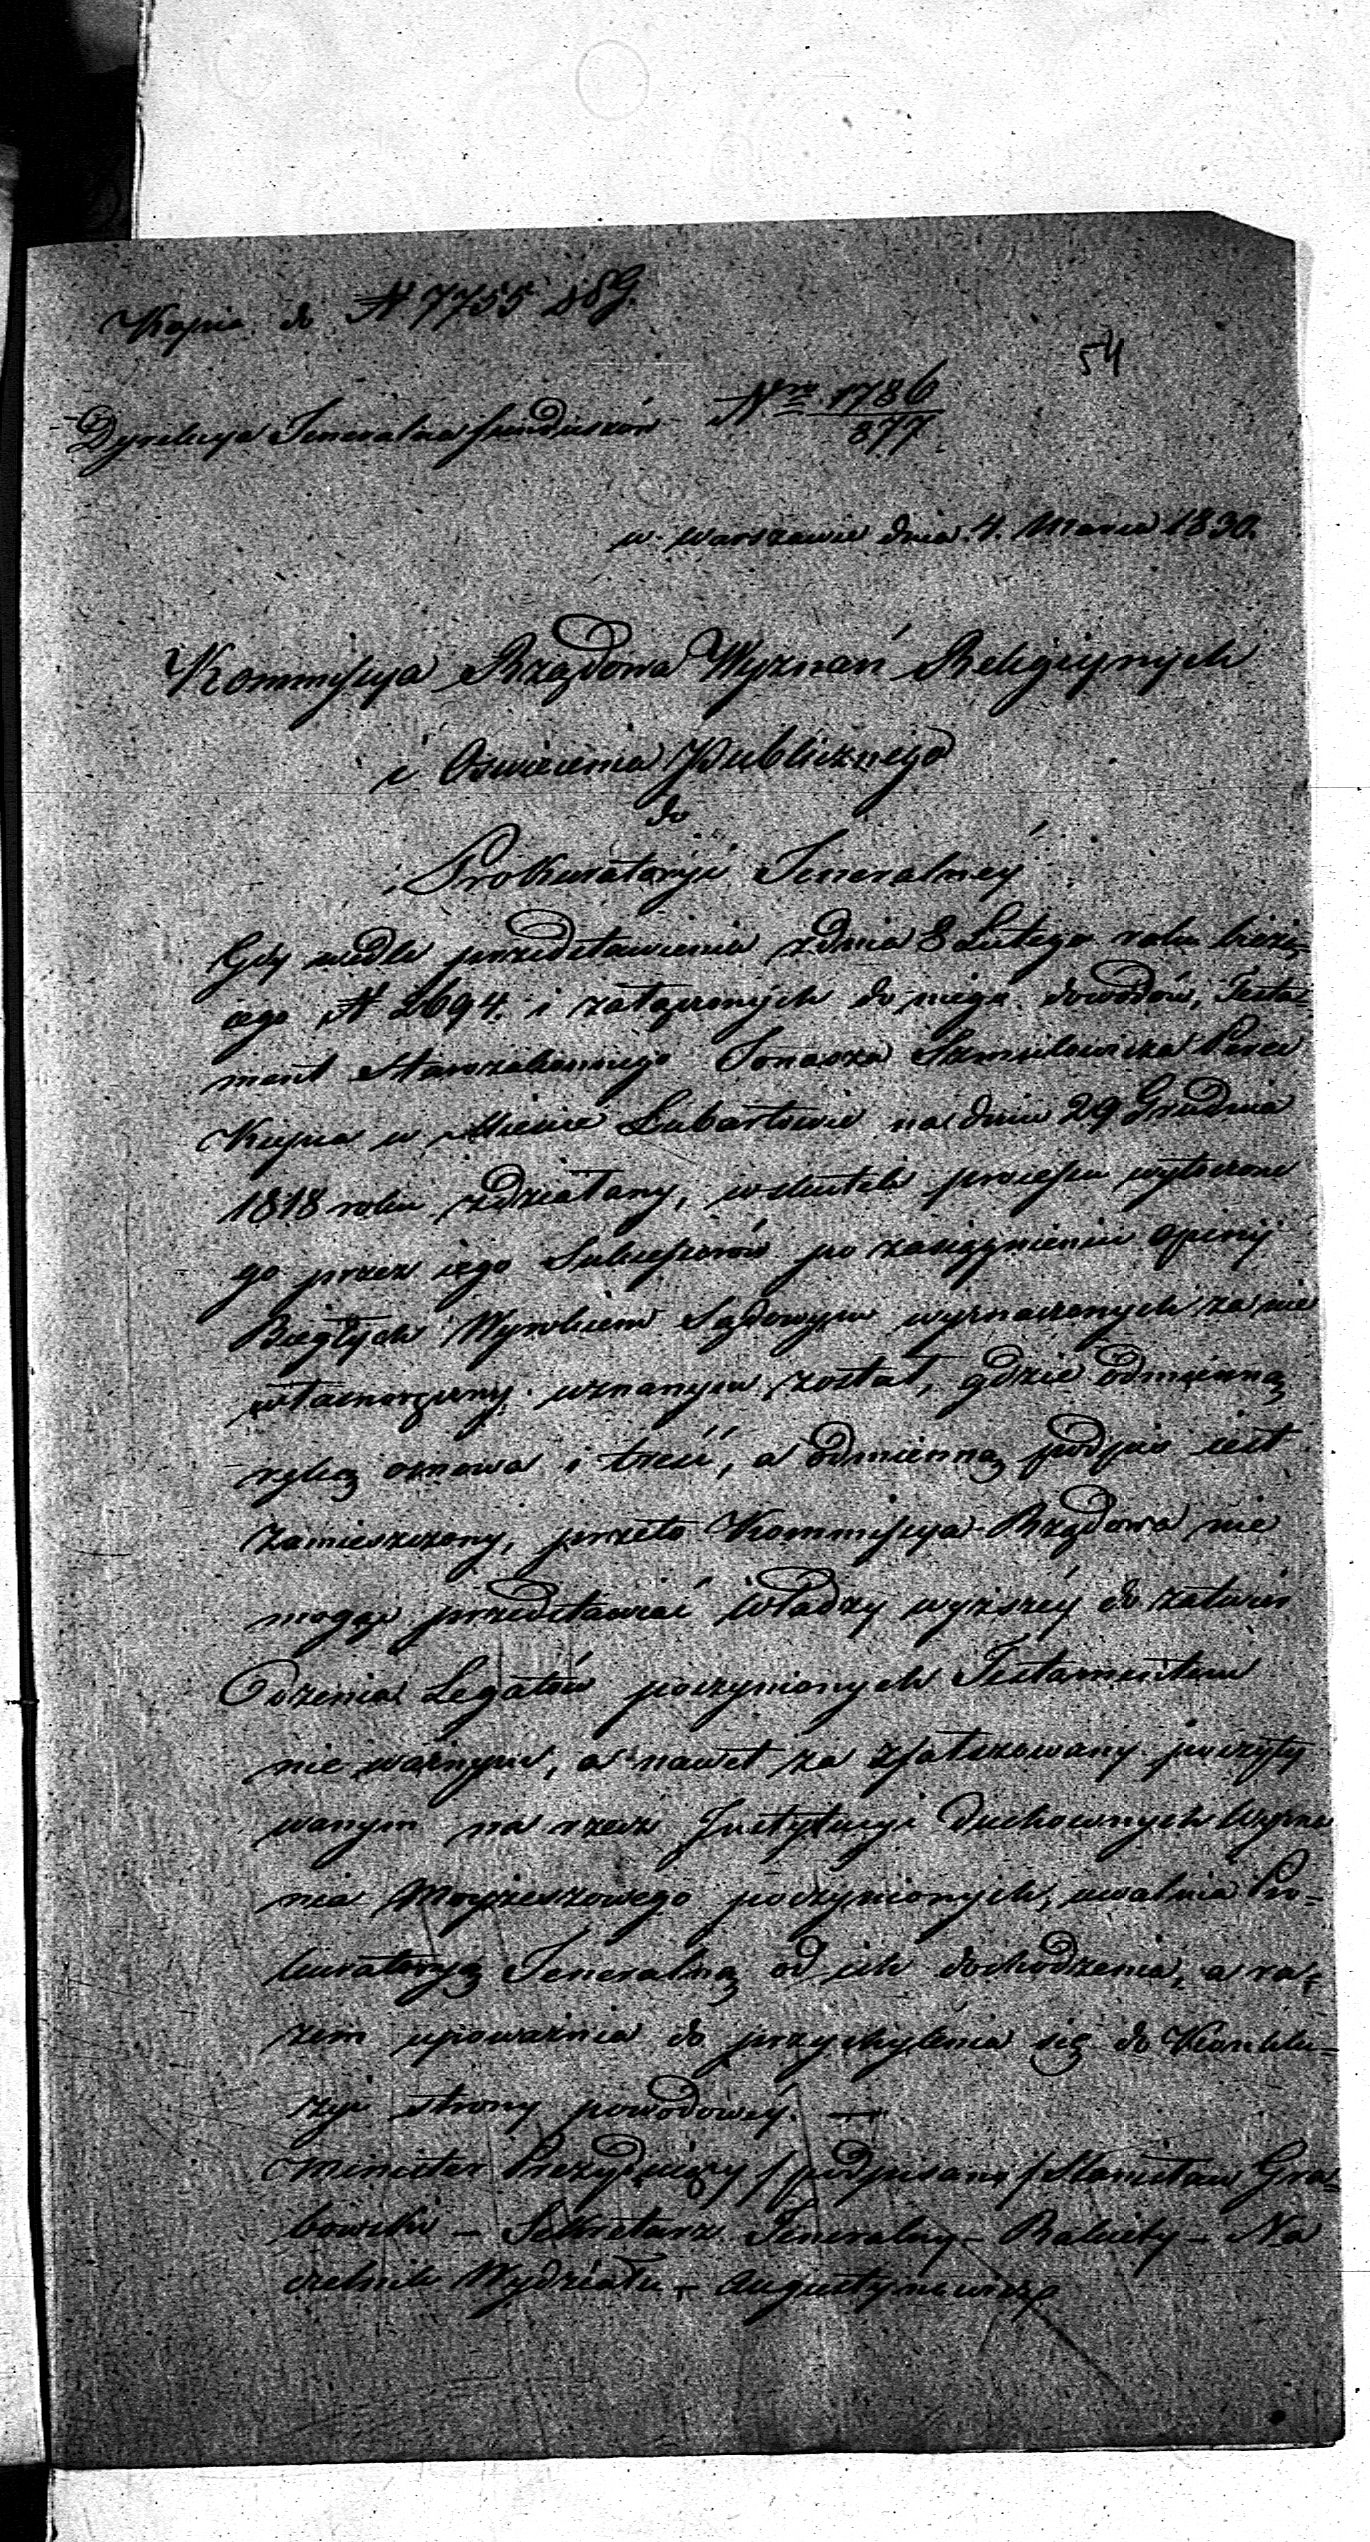 Kopia do N 7755 D8G.
54
Dyrekcya Jeneralna funduszów Nro 1786
877
w Warszawie dnia 4. Marca 1830.
Kommissya Rządowa Wyznań Religijnych
i Oświecenia Publicznego
do
Prokuratoryi Jeneralnéy
Gdy wedle przedstawienia z dnia 8 Lutego roku bieżą-
cego N 2694. i załączonych do niego dowodów, Testa-
ment Starozakonnego Jonasza Szmulowicza
Kupca w Mieście Lubartowie na dniu 29 Grudnia
1818 roku zdziałany, w skutek processu wytoczone
go przez iego Sukcessorów po zasięgnieniu opinij
Biegłych Wyrokiem Sądowym wyznaczonych za nie
własnoręczny uznanym został, gdzie odmienną
ręką osnowa i treść, a odmienną podpis iest
zamieszczony, przeto Kommissya Rządowa nie
mogąc przedstawiać władzy wyższéy do zatwier
dzenia Legatów poczynionych Testamentem
nie ważnym, a nawet za zfałszowany poczyty
wanym na rzecz Instytucyi Duchownych Wyzna
nia Moyżeszowego poczynionych, uwalnia Pro-
kuratoryą Jeneralną od ich dochodzenia, a ra-
zem upoważnia do przychylenia się do Konklu-
zyi strony powodowéy. —
Minister Prezyduiący /podpisano/ Stanisław Gra-
bowski – Sekretarz Jeneralny – – Na
czelnik Wydziału – Augustynowicz